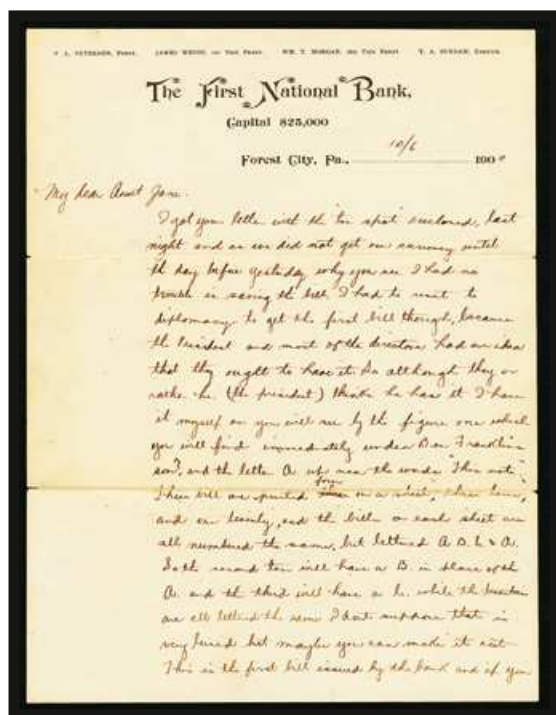 JAMES WEISS, 1st Vice Prest. WM. T. MORGAN, 2nd Vice Prest.
The First National Bank,
Capital $25,000
Forest City, Pa., 10/6 1900
My dear Aunt Jane.
I got your letter with the "ten spot" enclosed, last
night and as we did not get our currency until
the day before yesterday why you see I had no
trouble in saving the bill. I had to resort to
diplomacy to get the first bill though, because
the President and most of the directors had an idea
that they ought to have it. So although they or
rather he (the president) thinks he has it I have
it myself as you will see by the figure one which
you will find immediately under B on Franklin
and the letter A up near the words "This note".
These bills are printed four on a sheet, three tens,
and one twenty, and the bills on each sheet are
all numbered the same, but lettered A B. C & A.
So the second ten will have a B. in place of the
A. and the third will have a C. while the twenties
are all lettered the same. I don't suppose that is
very lucid but maybe you can make it out.
This is the first bill issued by the bank and if you